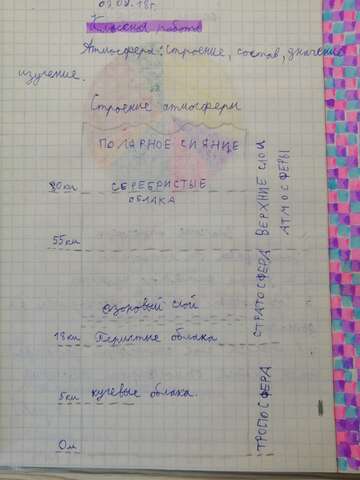 Классная работа
Атмосфера: строение, состав, значение,
изучение.
Строение атмосферы
ПОЛЯРНОЕ СИЯНИЕ
80км СЕРЕБРИСТЫЕ
ОБЛАКА
55км
озоровый слой
18км Перистые облака
5км кучевые облака.
0м
ВЕРХНИЕ СЛОИ
АТМОСФЕРЫ
СТРАТОСФЕРА
ТРОПОСФЕРА